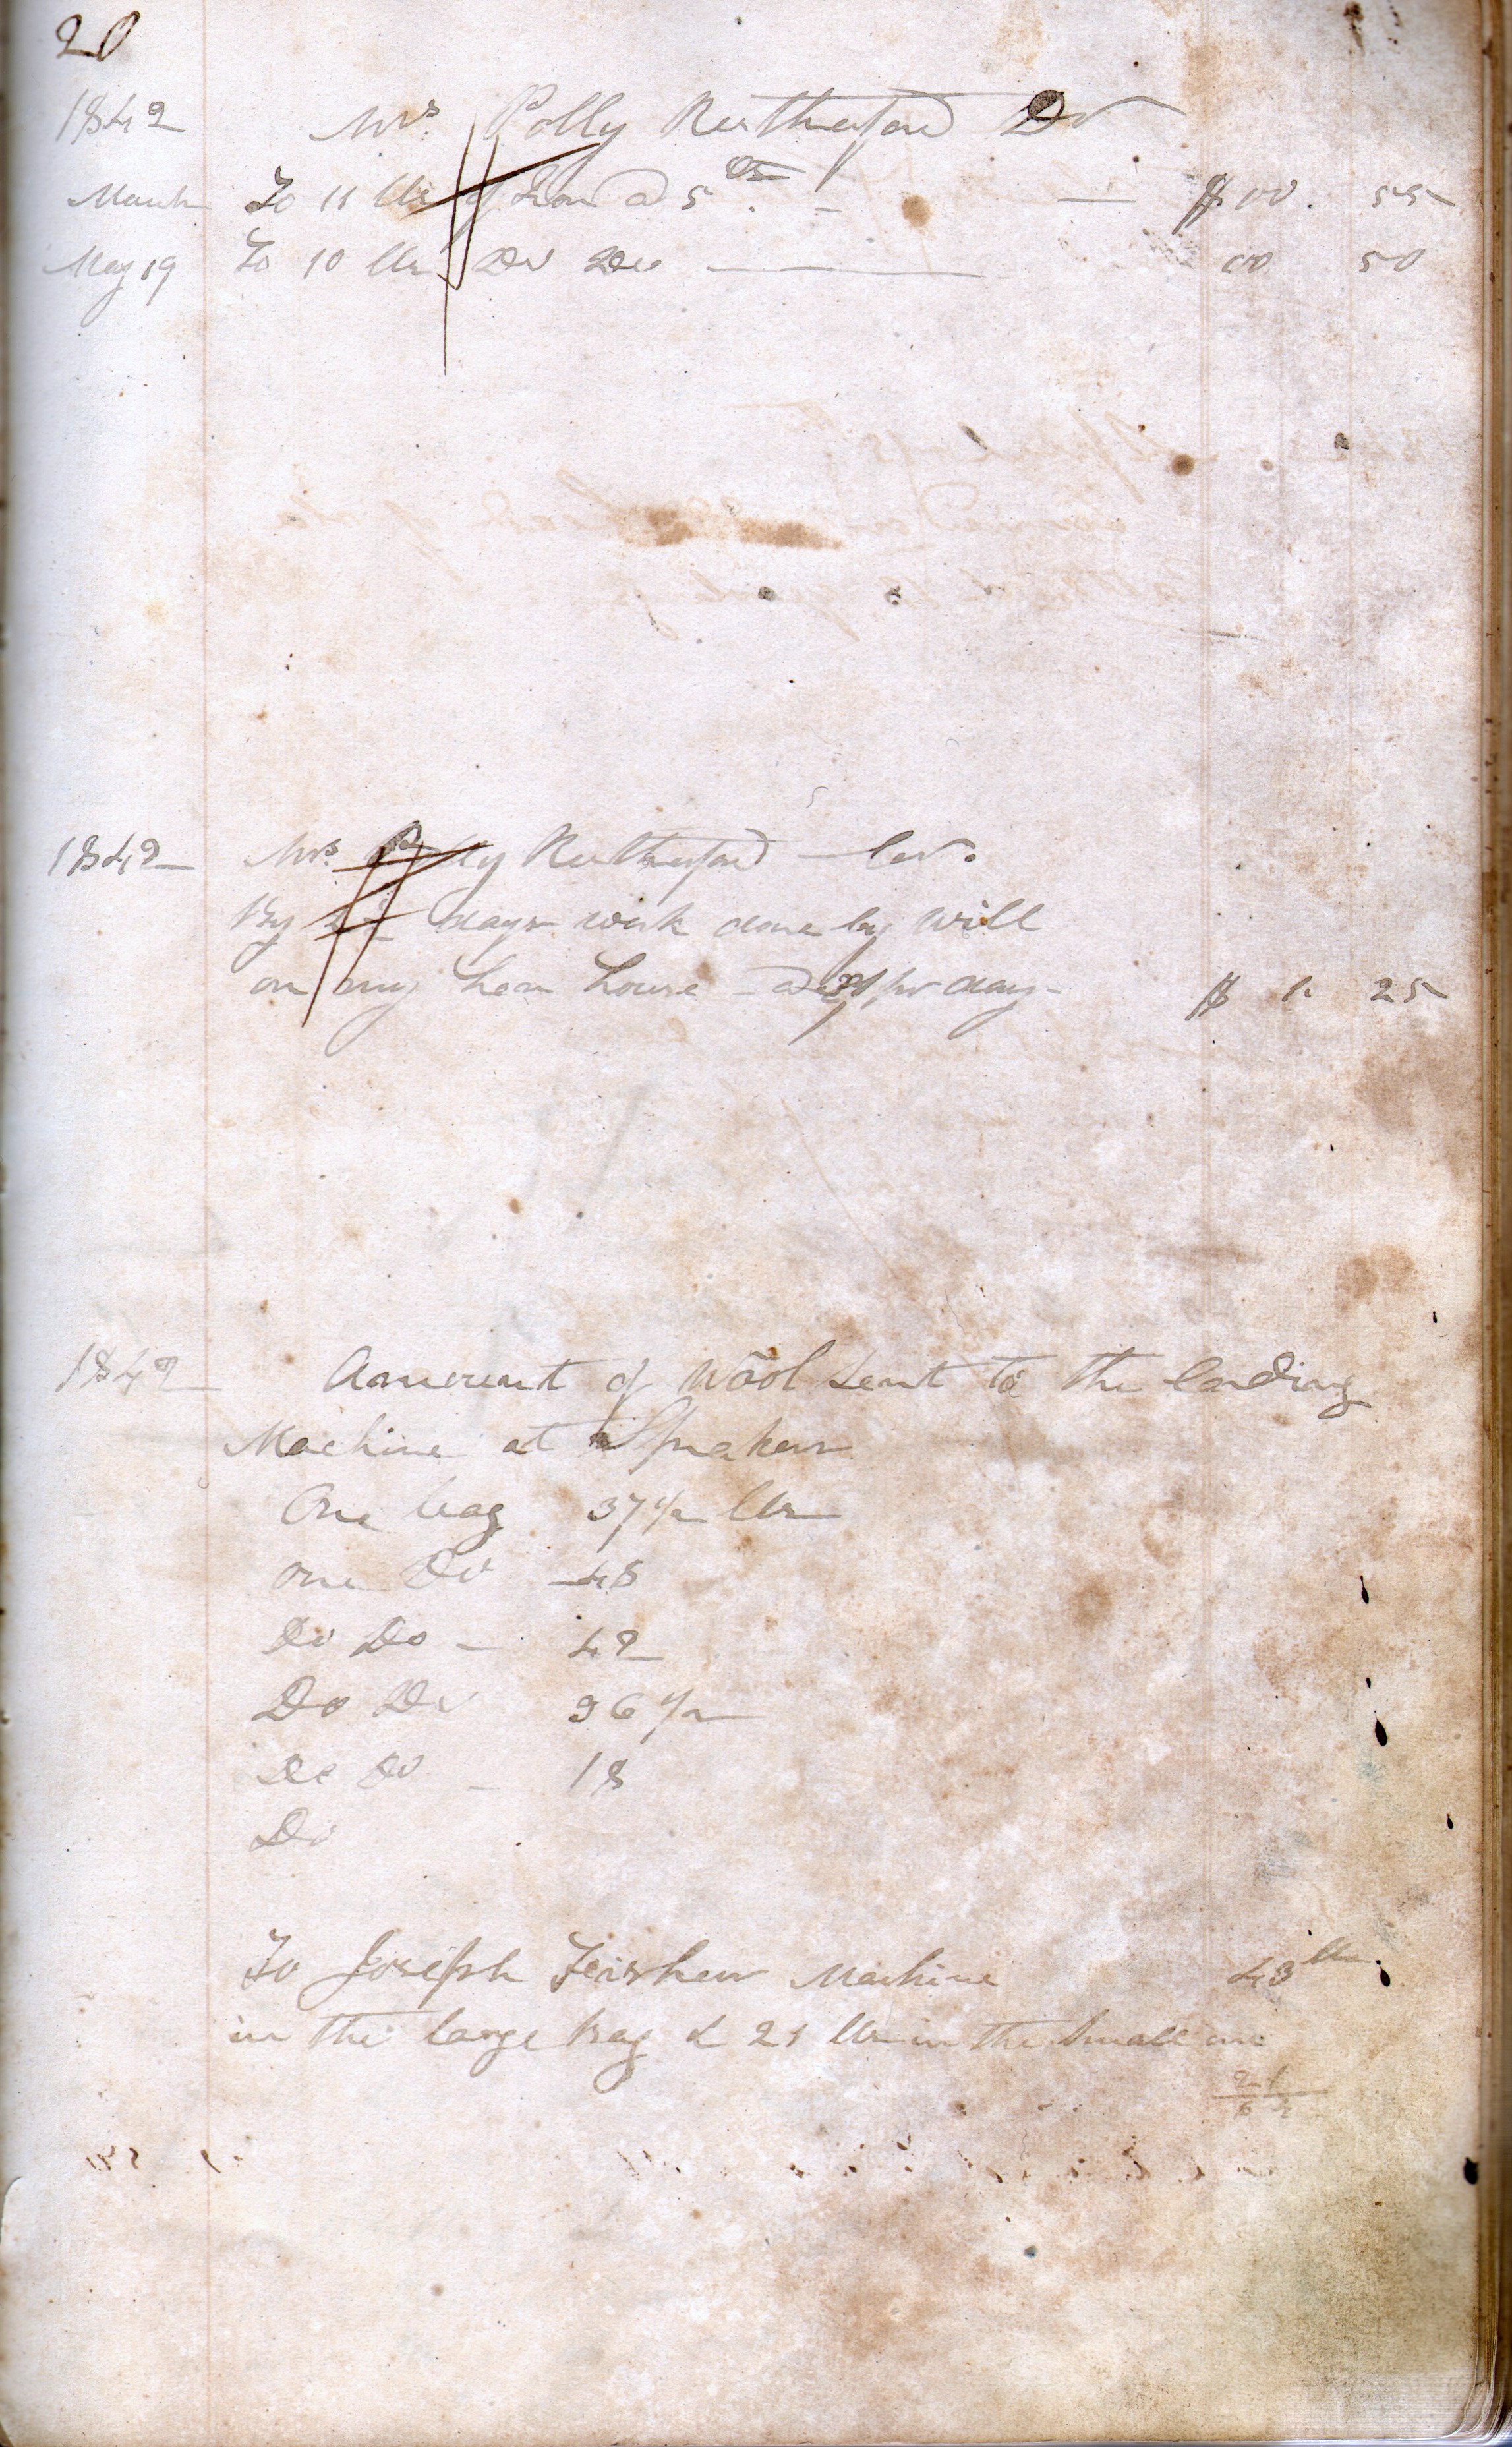 20
1842 Mrs. Polly Rutherford Dr
March To 11 lbs of Iron @ 5 cts — $ 00. 55
May 19 To 10 lbs Do Do — 00 50
1842 Mrs. Polly Rutherford Cr.
By days work done by Will
on my hen house @ pr day - $ 1. 25
1842 Amount of Wool Sent to the Carding
Machine at
One bag 37 1/2 lbs
One Do 48
Do Do - 42
Do Do 36 1/2
Do Do - 18
Do
To Joseph Machine 43 lbs.
in the large bag & 21 lbs in the Small one
21
64